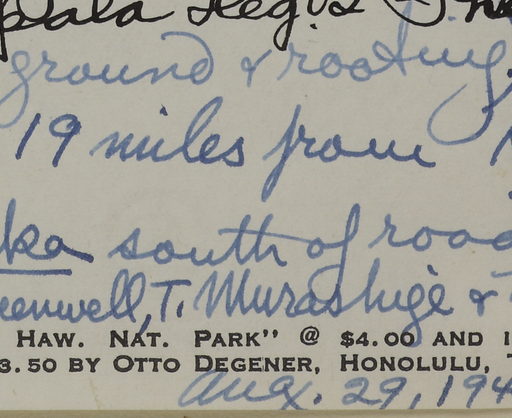 ground & rooting.
19 miles from
ka south of road
eenwell, T. Murashige &
HAW. NAT. PARK" @ $4.00 AND
3.50 BY OTTO DEGENER, HONOLULU,
Aug. 29, 194